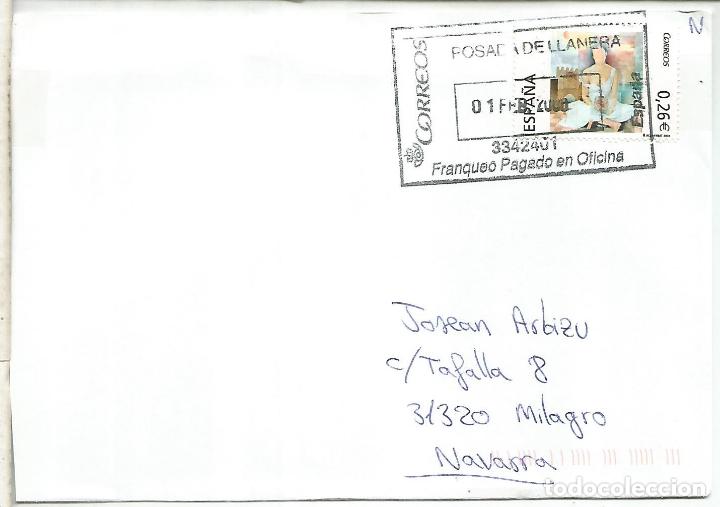 N
CORREOS
POSADA DE LLANERA
01 FEB 200
3342401
Franqueo Pagado en Oficina
ESPAÑA
CORREOS
0,26€
España
Josean Arbizu
c/Tafalla 8
31320 Milagro
Navarra
todocoleccion